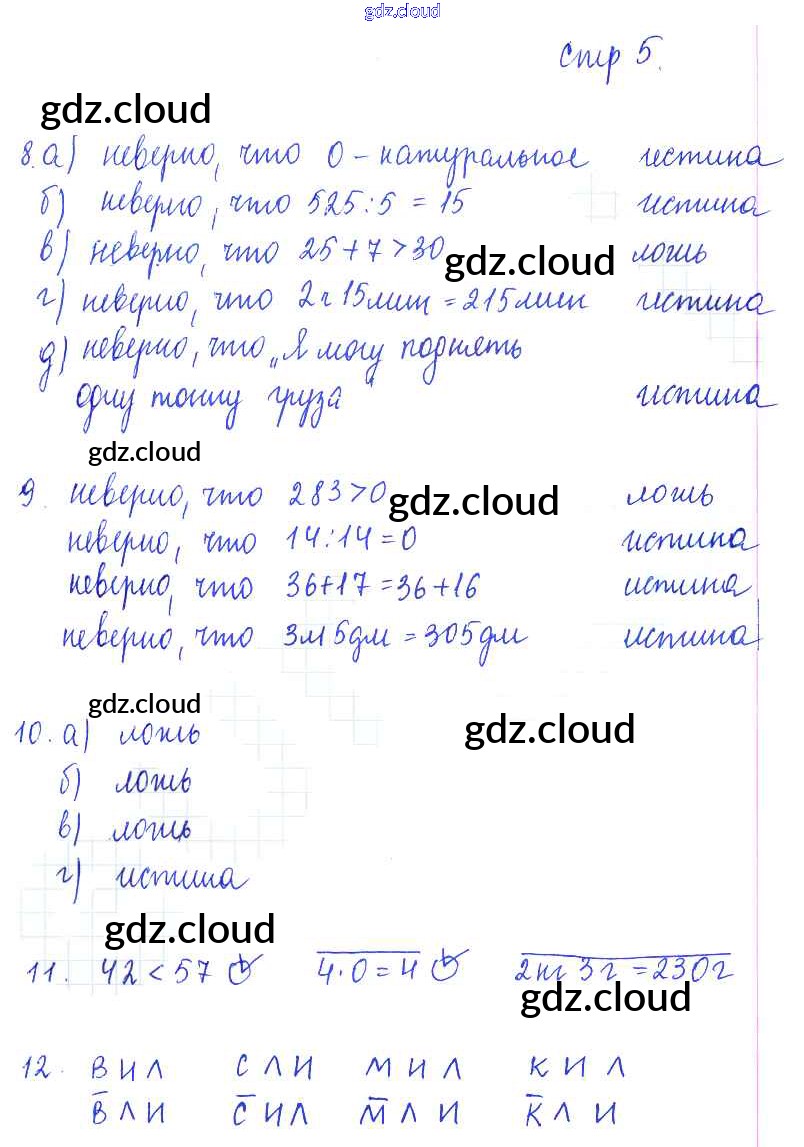 gdz.cloud
стр 5.
gdz.cloud
8.а) неверно, что 0 - натуральное истина
б) неверно, что 525:5 = 15 истина
в) неверно, что 25+7>30 ложь
gdz.cloud
г) неверно, что 2ч 15мин = 215мин истина
д) неверно, что „Я могу поднять
одну тонну груза" истина
gdz.cloud
9. неверно, что 283>0 ложь
gdz.cloud
неверно, что 14:14=0 истина
неверно, что 36+17=36+16 истина
неверно, что 3м 5дм = 305дм истина
gdz.cloud
gdz.cloud
10. а) ложь
б) ложь
в) ложь
г) истина
gdz.cloud
11. 42 < 57 4·0=4 2кг 3г =230г
gdz.cloud
12. В И Л С Л И М И Л К И Л
В̅ Л И С̅ И Л М̅ Л И К̅ Л И